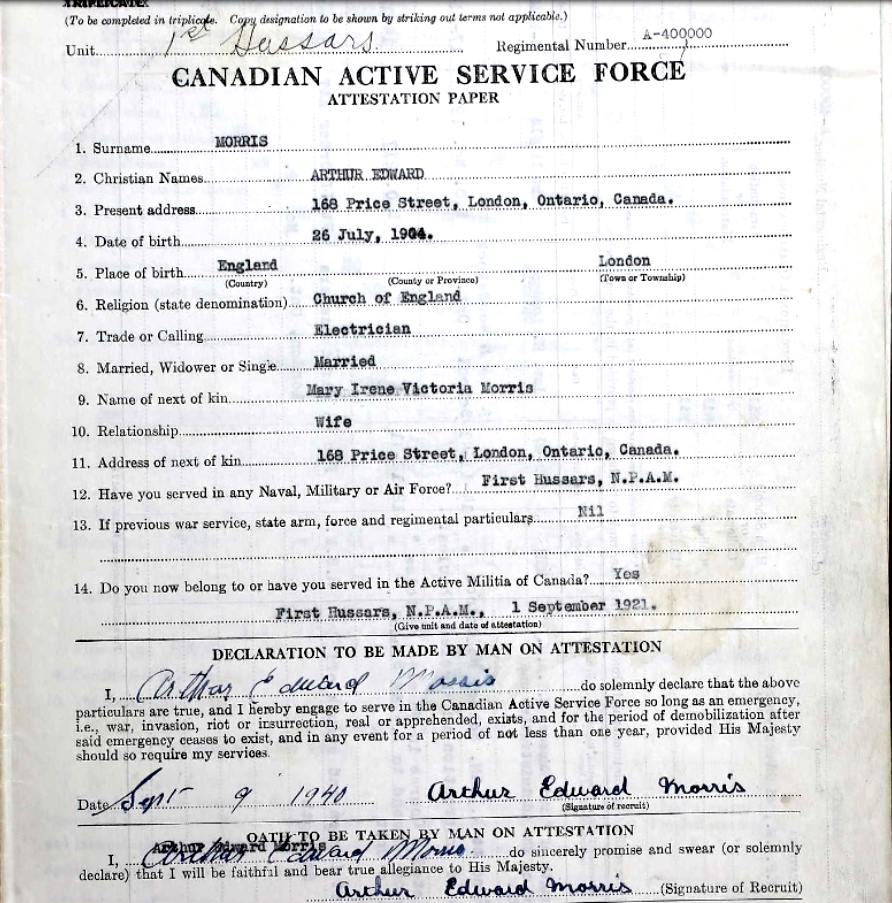 TRIPLICATE
(To be completed in triplicate. Copy designation to be shown by striking out terms not applicable.)
Unit 1st Hussars. Regimental Number A-400000
CANADIAN ACTIVE SERVICE FORCE
ATTESTATION PAPER
1. Surname MORRIS
2. Christian Names ARTHUR EDWARD
3. Present address 168 Price Street, London, Ontario, Canada.
4. Date of birth 26 July, 1904.
5. Place of birth England London
(Country) (County or Province) (Town or Township)
6. Religion (state denomination) Church of England
7. Trade or Calling Electrician
8. Married, Widower or Single Married
9. Name of next of kin Mary Irene Victoria Morris
10. Relationship Wife
11. Address of next of kin 168 Price Street, London, Ontario, Canada.
12. Have you served in any Naval, Military or Air Force? First Hussars, N.P.A.M.
13. If previous war service, state arm, force and regimental particulars Nil
14. Do you now belong to or have you served in the Active Militia of Canada? Yes
First Hussars, N.P.A.M., 1 September 1921.
(Give unit and date of attestation)
DECLARATION TO BE MADE BY MAN ON ATTESTATION
I, Arthur Edward Morris do solemnly declare that the above
particulars are true, and I hereby engage to serve in the Canadian Active Service Force so long as an emergency,
i.e., war, invasion, riot or insurrection, real or apprehended, exists, and for the period of demobilization after
said emergency ceases to exist, and in any event for a period of not less than one year, provided His Majesty
should so require my services.
Date Sept 9 1940 Arthur Edward Morris
(Signature of recruit)
OATH TO BE TAKEN BY MAN ON ATTESTATION
Arthur Edward Morris
I, Arthur Edward Morris do sincerely promise and swear (or solemnly
declare) that I will be faithful and bear true allegiance to His Majesty.
Arthur Edward Morris (Signature of Recruit)